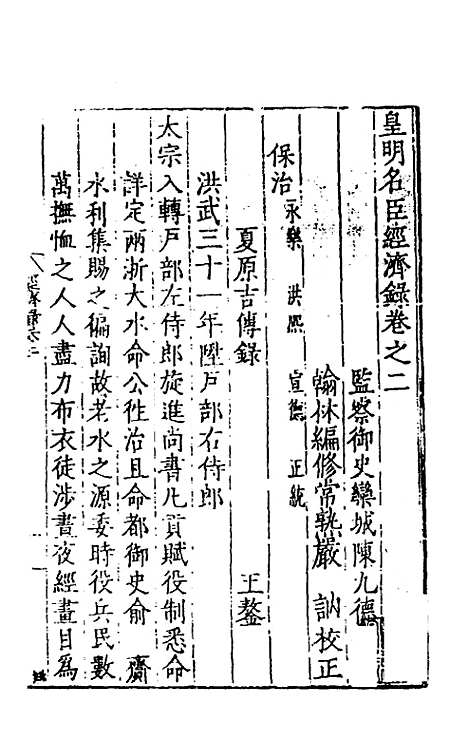 皇明名臣經濟錄卷之二
監察御史欒城陳九德
翰林編修常熟嚴 訥校正
保治永樂 洪熙 宣德 正統
夏原吉傳錄 王鏊
洪武三十一年陞戸部右侍郎
太宗入轉戸部左侍郎旋進尚書凡貢賦役制悉命
詳定兩浙大水命公徃治且命都御史俞 齎
水利集賜之徧詢故老水之源委時役兵民數
萬撫恤之人人盡力布衣徒涉晝夜經畫目為